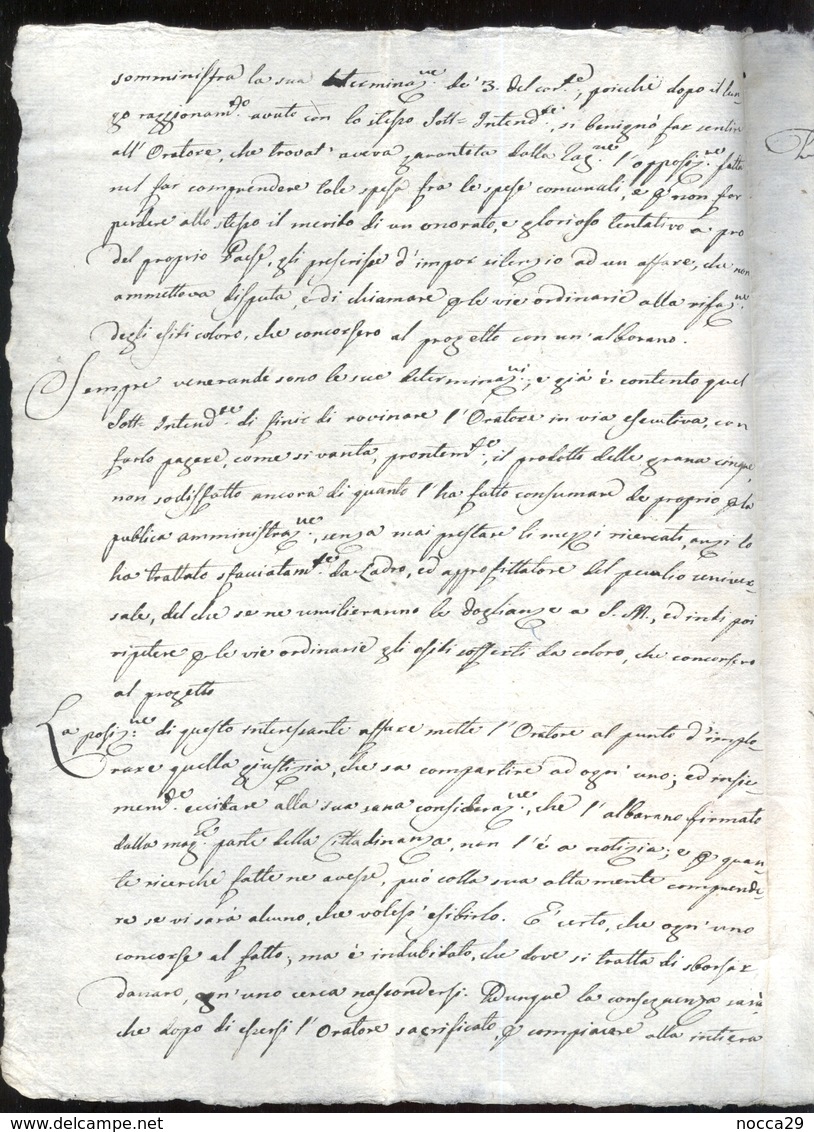 somministra la sua determina.ne de' 3. del cor.te, poicchè dopo il lun-
go raggionam.to avuto con lo stesso Sott= Intend.te, si benignò far sentire
all'Oratore, che trovat' aveva garantita dalla rag.ne l'opposiz.ne fatta
nel far comprendere tale spesa fra le spese comunali, e p non far
perdere allo stesso il merito di un onorato, e glorioso tentativo a pro
del proprio Paese, gli prescrisse d'impor silenzio ad un affare, che non
ammetteva disputa, e di chiamare p le vie ordinarie alla rifaz.ne
degli esiti coloro, che concorsero al progetto con un'alborano.
Sempre venerande sono le sue determinaz.ni, e già è contento quel
Sott= Intend.te di finir di rovinare l'Oratore in via esecutiva, con
farlo pagare, come si vanta, prontam.te, il prodotto delle grana cinque,
non sodisfatto ancora di quanto l'ha fatto consumare de proprio p la
publica amministraz.ne, senza mai prestare li mezzi ricercati, anzi lo
ha trattato sfacciatam.te da Ladro, ed approfittatore del peculio univer-
sale, del che se ne umilieranno le doglianze a S. M., ed indi poi
ripetere p le vie ordinarie gli esiti sofferti da coloro, che concorsero
al progetto
La posiz.ne di questo interessante affare mette l'Oratore al punto d'implo-
rare quella giustizia, che sa compartire ad ogn'uno; ed insie-
mem.te eccitare alla sua sana consideraz.ne, che l'alborano firmato
dalla mag.r parte della Cittadinanza, non l'è a notizia; e p quan-
te ricerche fatte ne avesse, può colla sua alta mente comprende-
re se vi sarà alcuno, che voless' esibirlo. E' certo, che ogn'uno
concorse al fatto; ma è indubitato, che dove si tratta di sborsar
danaro, ogn'uno cerca nascondersi. Adunque la conseguenza sarà
che dopo di essersi l'Oratore sacrificato, p compiacere alla intiera
nocca29